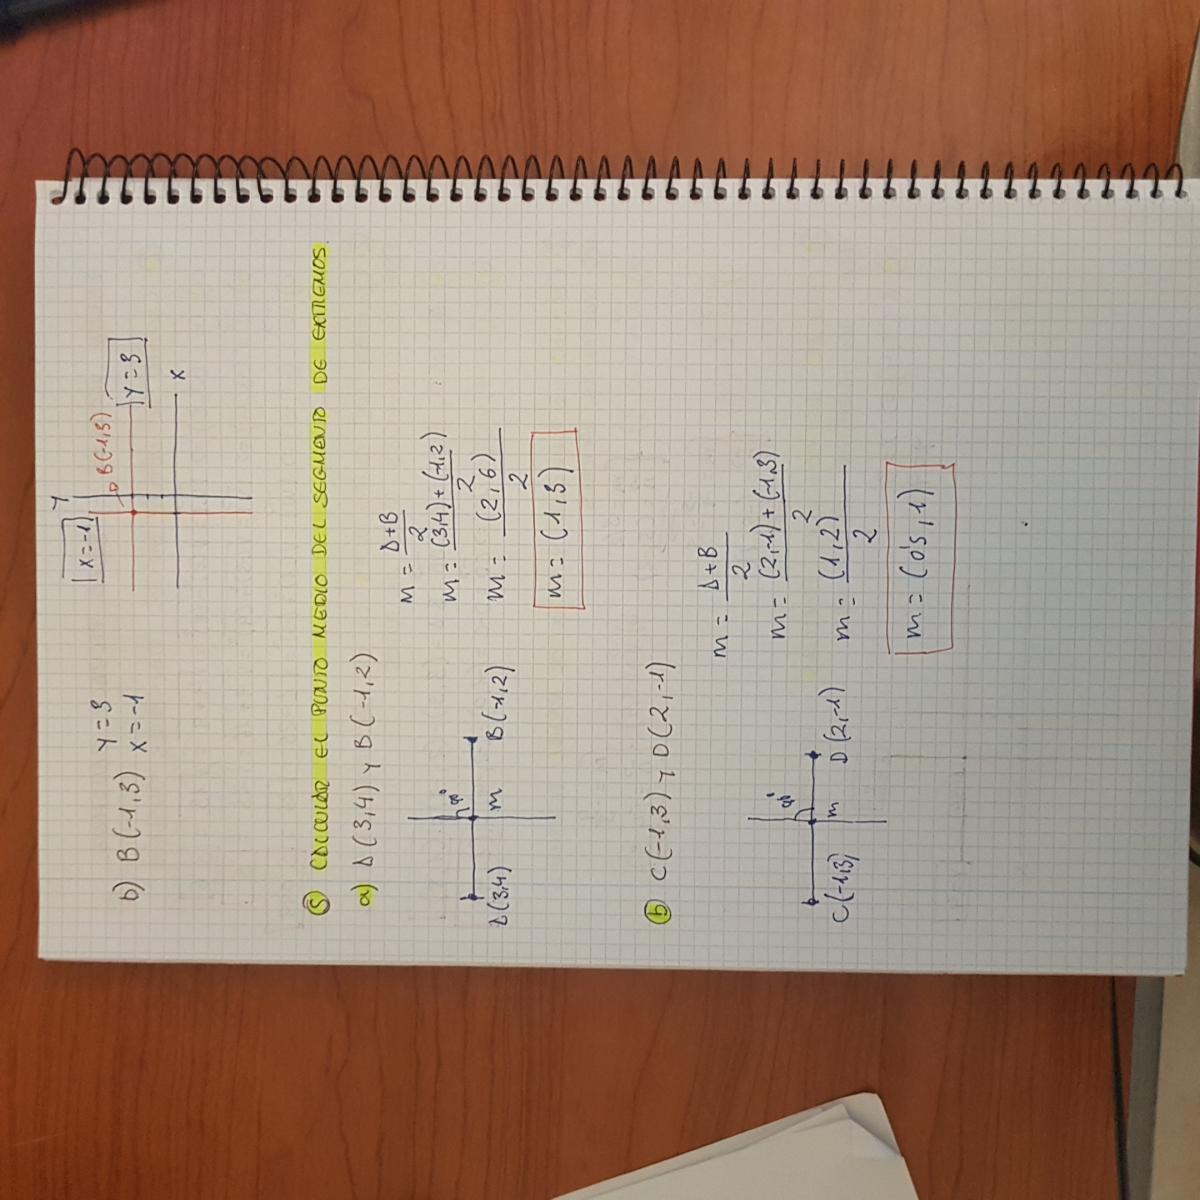 b) B(-1,3) Y=3
X=-1
X=-1
Y
B(-1,3)
Y=3
X
5 CALCULAR EL PUNTO MEDIO DEL SEGMENTO DE EXTREMOS.
a) A(3,4) Y B(-1,2)
90°
A(3,4) m B(-1,2)
m = A+B
2
m = (3,4)+(-1,2)
2
m = (2,6)
2
m = (1,3)
b) C(-1,3) Y D(2,-1)
90°
C(-1,3) m D(2,-1)
m = A+B
2
m = (2,-1)+(-1,3)
2
m = (1,2)
2
m = (0'5,1)